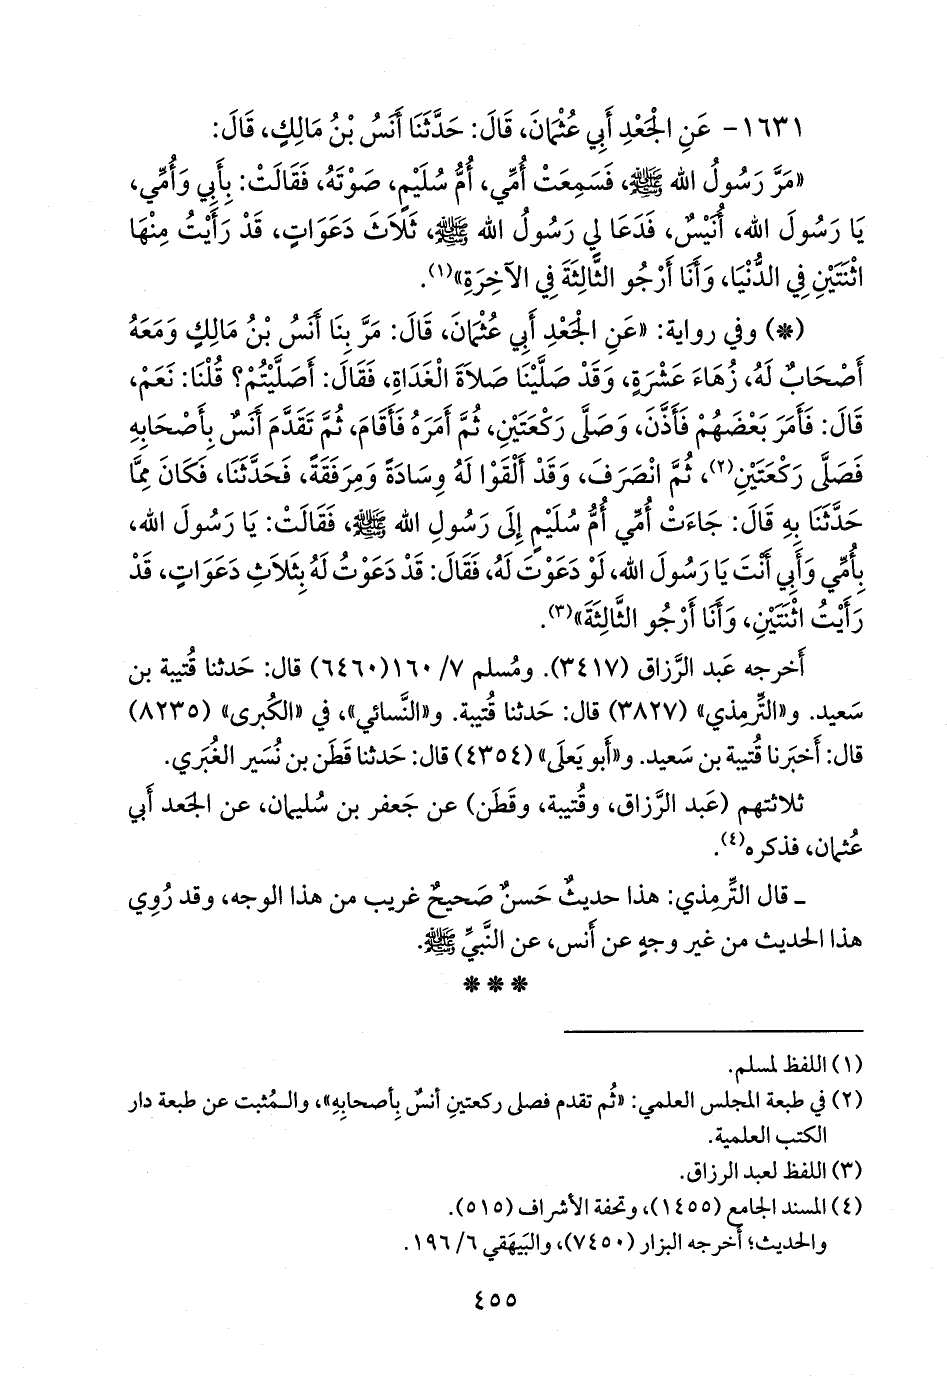 ١٦٣١- عَنِ الْجَعْدِ أَبِي عُثْمَانَ، قَالَ: حَدَّثَنَا أَنَسُ بْنُ مَالِكٍ، قَالَ:
«مَرَّ رَسُولُ الله ﷺ، فَسَمِعَتْ أُمِّي، أُمُّ سُلَيْمٍ، صَوْتَهُ، فَقَالَتْ: بِأَبِي وَأُمِّي،
يَا رَسُولَ الله، أُنَيْسٌ، فَدَعَا لِي رَسُولُ الله ﷺ، ثَلَاثَ دَعَوَاتٍ، قَدْ رَأَيْتُ مِنْهَا
اثْنَتَيْنِ فِي الدُّنْيَا، وَأَنَا أَرْجُو الثَّالِثَةَ فِي الآخِرَةِ»(١).
(*) وفي رواية: «عَنِ الْجَعْدِ أَبِي عُثْمَانَ، قَالَ: مَرَّ بِنَا أَنَسُ بْنُ مَالِكٍ وَمَعَهُ
أَصْحَابٌ لَهُ، زُهَاءَ عَشْرَةٍ، وَقَدْ صَلَّيْنَا صَلَاةَ الْغَدَاةِ، فَقَالَ: أَصَلَّيْتُمْ؟ قُلْنَا: نَعَمْ،
قَالَ: فَأَمَرَ بَعْضَهُمْ فَأَذَّنَ، وَصَلَّى رَكْعَتَيْنِ، ثُمَّ أَمَرَهُ فَأَقَامَ، ثُمَّ تَقَدَّمَ أَنَسٌ بِأَصْحَابِهِ
فَصَلَّى رَكْعَتَيْنِ(٢)، ثُمَّ انْصَرَفَ، وَقَدْ أَلْقَوْا لَهُ وِسَادَةً وَمِرَفَقَةً، فَحَدَّثَنَا، فَكَانَ مِمَّا
حَدَّثَنَا بِهِ قَالَ: جَاءَتْ أُمِّي أُمُّ سُلَيْمٍ إِلَى رَسُولِ الله ﷺ، فَقَالَتْ: يَا رَسُولَ الله،
بِأُمِّي وَأَبِي أَنْتَ يَا رَسُولَ الله، لَوْ دَعَوْتَ لَهُ، فَقَالَ: قَدْ دَعَوْتُ لَهُ بِثَلَاثِ دَعَوَاتٍ، قَدْ
رَأَيْتُ اثْنَتَيْنِ، وَأَنَا أَرْجُو الثَّالِثَةَ»(٣).
أَخرجه عَبد الرَّزاق (٣٤١٧). ومُسلم ٧/ ١٦٠(٦٤٦٠) قال: حَدثنا قُتيبة بن
سَعيد. و«التِّرمِذي» (٣٨٢٧) قال: حَدثنا قُتيبة. و«النَّسائي»، في «الكُبرى» (٨٢٣٥)
قال: أَخبَرنا قُتيبة بن سَعيد. و«أَبو يَعلَى» (٤٣٥٤) قال: حَدثنا قَطَن بن نُسَير الغُبَري.
ثلاثتهم (عَبد الرَّزاق، وقُتيبة، وقَطَن) عن جَعفر بن سُليمان، عن الجَعد أَبي
عُثمان، فذكره(٤).
ـ قال التِّرمِذي: هذا حديثٌ حَسنٌ صَحيحٌ غريب من هذا الوجه، وقد رُوِي
هذا الحديث من غير وجهٍ عن أَنس، عن النَّبيِّ ﷺ.
* * *
(١) اللفظ لمسلم.
(٢) في طبعة المجلس العلمي: «ثُم تقدم فصلى ركعتينِ أنسٌ بِأصحابِهِ»، والـمُثبت عن طبعة دار
الكتب العلمية.
(٣) اللفظ لعبد الرزاق.
(٤) المسند الجامع (١٤٥٥)، وتحفة الأشراف (٥١٥).
والحديث؛ أخرجه البزار (٧٤٥٠)، والبَيهَقي ٦/ ١٩٦.
٤٥٥